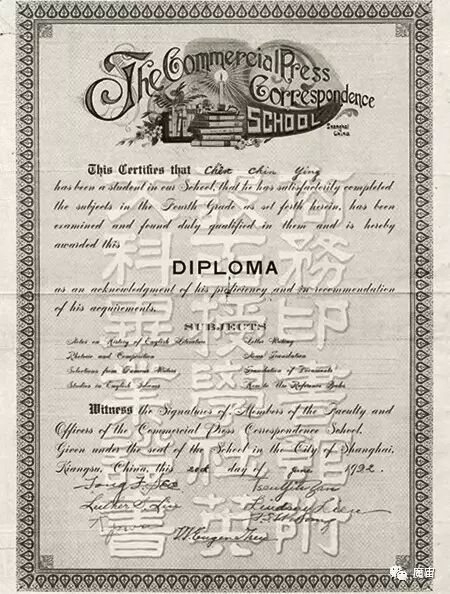 The Commercial Press
Correspondence
SCHOOL
Shanghai
China
This Certifies that Chen Chin Ying
has been a student in our School, that he has satisfactorily completed
the subjects in the Fourth Grade as set forth herein, has been
examined and found duly qualified in them and is hereby
awarded this
DIPLOMA
as an acknowledgment of his proficiency and in recommendation
of his acquirements.
SUBJECTS
Notes on History of English Literature
Letter Writing
Rhetoric and Composition
News Translation
Selections from Famous Writers
Translation of Documents
Studies in English Idioms
How to Use Reference Books
Witness the Signatures of Members of the Faculty and
Officers of the Commercial Press Correspondence School.
Given under the seal of the School in the City of Shanghai,
Kiangsu, China, this day of June 1932.
商務印書館附
授學社英
文科
書
魔宙